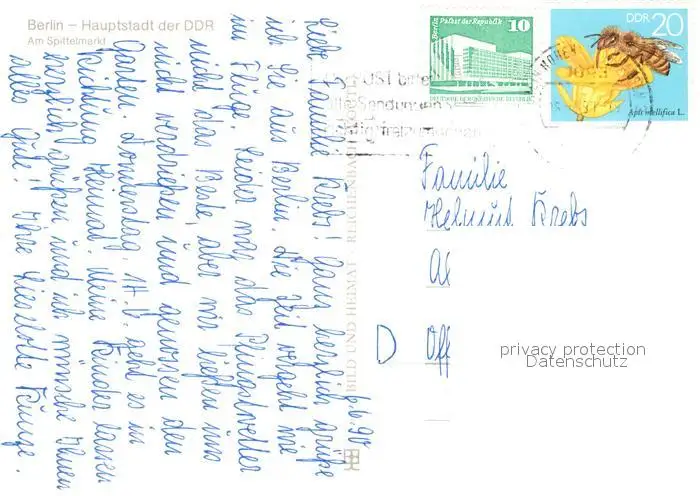 Berlin – Hauptstadt der DDR
Am Spittelmarkt
6.6.90
Liebe Familie Krebs! Ganz herzlich grüße
ich Sie aus Berlin. Die Zeit vergeht wie
im Fluge. Leider war das Pfingstwetter
nicht das Beste, aber wir ließen uns
nicht verdrießen und genossen den
Garten. Donnerstag, 14. geht es in
Richtung Heimat. Meine Kinder lassen
herzlich grüßen und ich wünsche Ihnen
alles Gute! Ihre Lieselotte Runge.
BILD UND HEIMAT REICHENBACH
Berlin, Palast der Republik 10
DEUTSCHE DEMOKRATISCHE REPUBLIK
DDR 20
Apis mellifica L.
Familie
Helmut Krebs
Al
D Off
privacy protection
Datenschutz